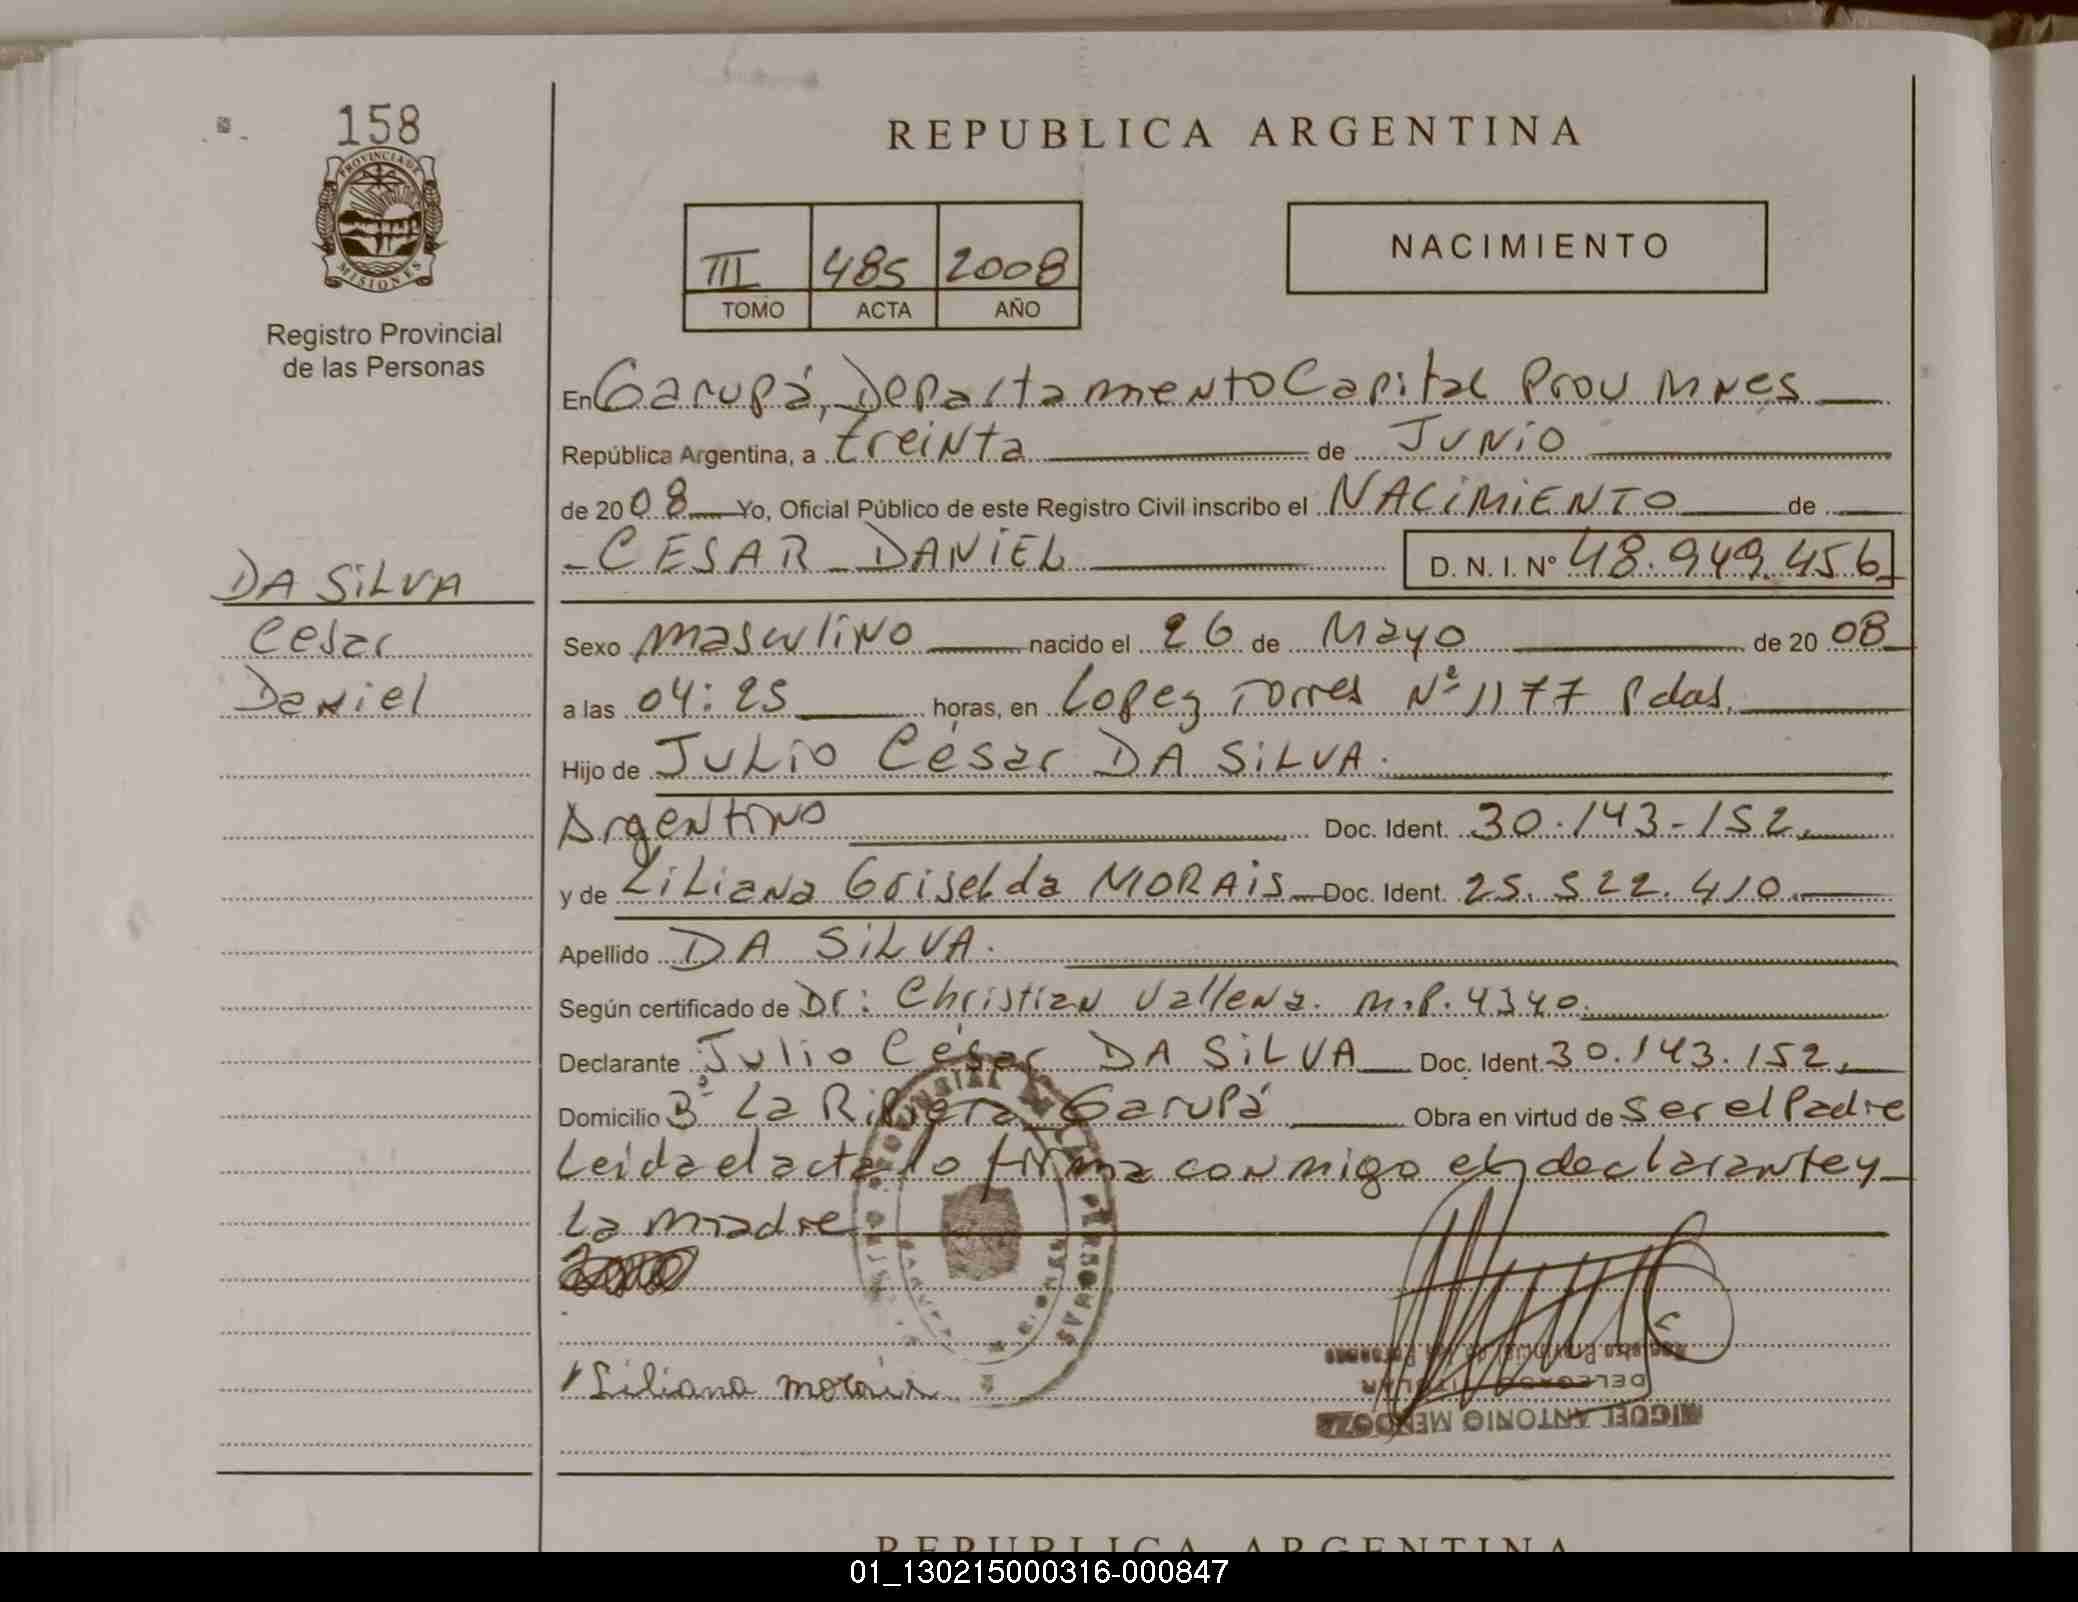 158
PROVINCIA DE
MISIONES
Registro Provincial
de las Personas
DA SILVA
Cesar
Daniel
REPUBLICA ARGENTINA
III 485 2008
TOMO ACTA AÑO
NACIMIENTO
En Garupá, Departamento Capital Prov Mnes
República Argentina, a treinta de Junio
de 2008 Yo, Oficial Público de este Registro Civil inscribo el NACIMIENTO de
CESAR DANIEL D. N. I. Nº 48.949.456
Sexo masculino nacido el 26 de Mayo de 2008
a las 04:25 horas, en Lopez Torres Nº 1177 Pdas.
Hijo de Julio César DA SILVA.
Argentino Doc. Ident. 30.143-152
y de Liliana Griselda MORAIS Doc. Ident. 25.522.410
Apellido DA SILVA.
Según certificado de Dr: Christian Vallena. M.P. 4340
Declarante Julio César DA SILVA Doc. Ident. 30.143.152
Domicilio Bº La Ribera Garupá Obra en virtud de ser el Padre
Leida el acta lo firma conmigo el declarante y
La madre
Liliana morais
Registro Provincial de las Personas
DELEGADO TITULAR
MIGUEL ANTONIO MENDOZA
REPUBLICA ARGENTINA
01_130215000316-000847